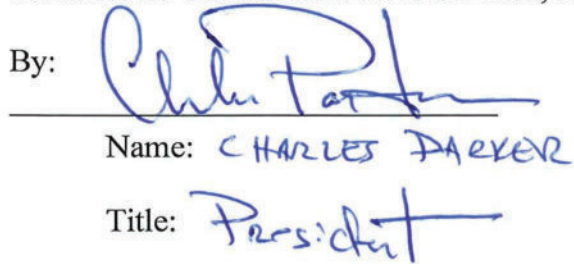 By: Charles Parker
Name: CHARLES PARKER
Title: President